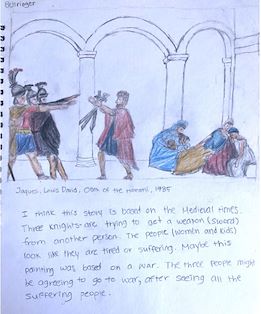 Jaques, Louis David, Oath of the Horatii, 1985
I think this story is based on the Medieval times.
Three knights are trying to get a weapon (sword)
from another person. The people (women and kids)
look like they are tired or suffering. Maybe this
painting was based on a war. The three people might
be agreeing to go to war, after seeing all the
suffering people.